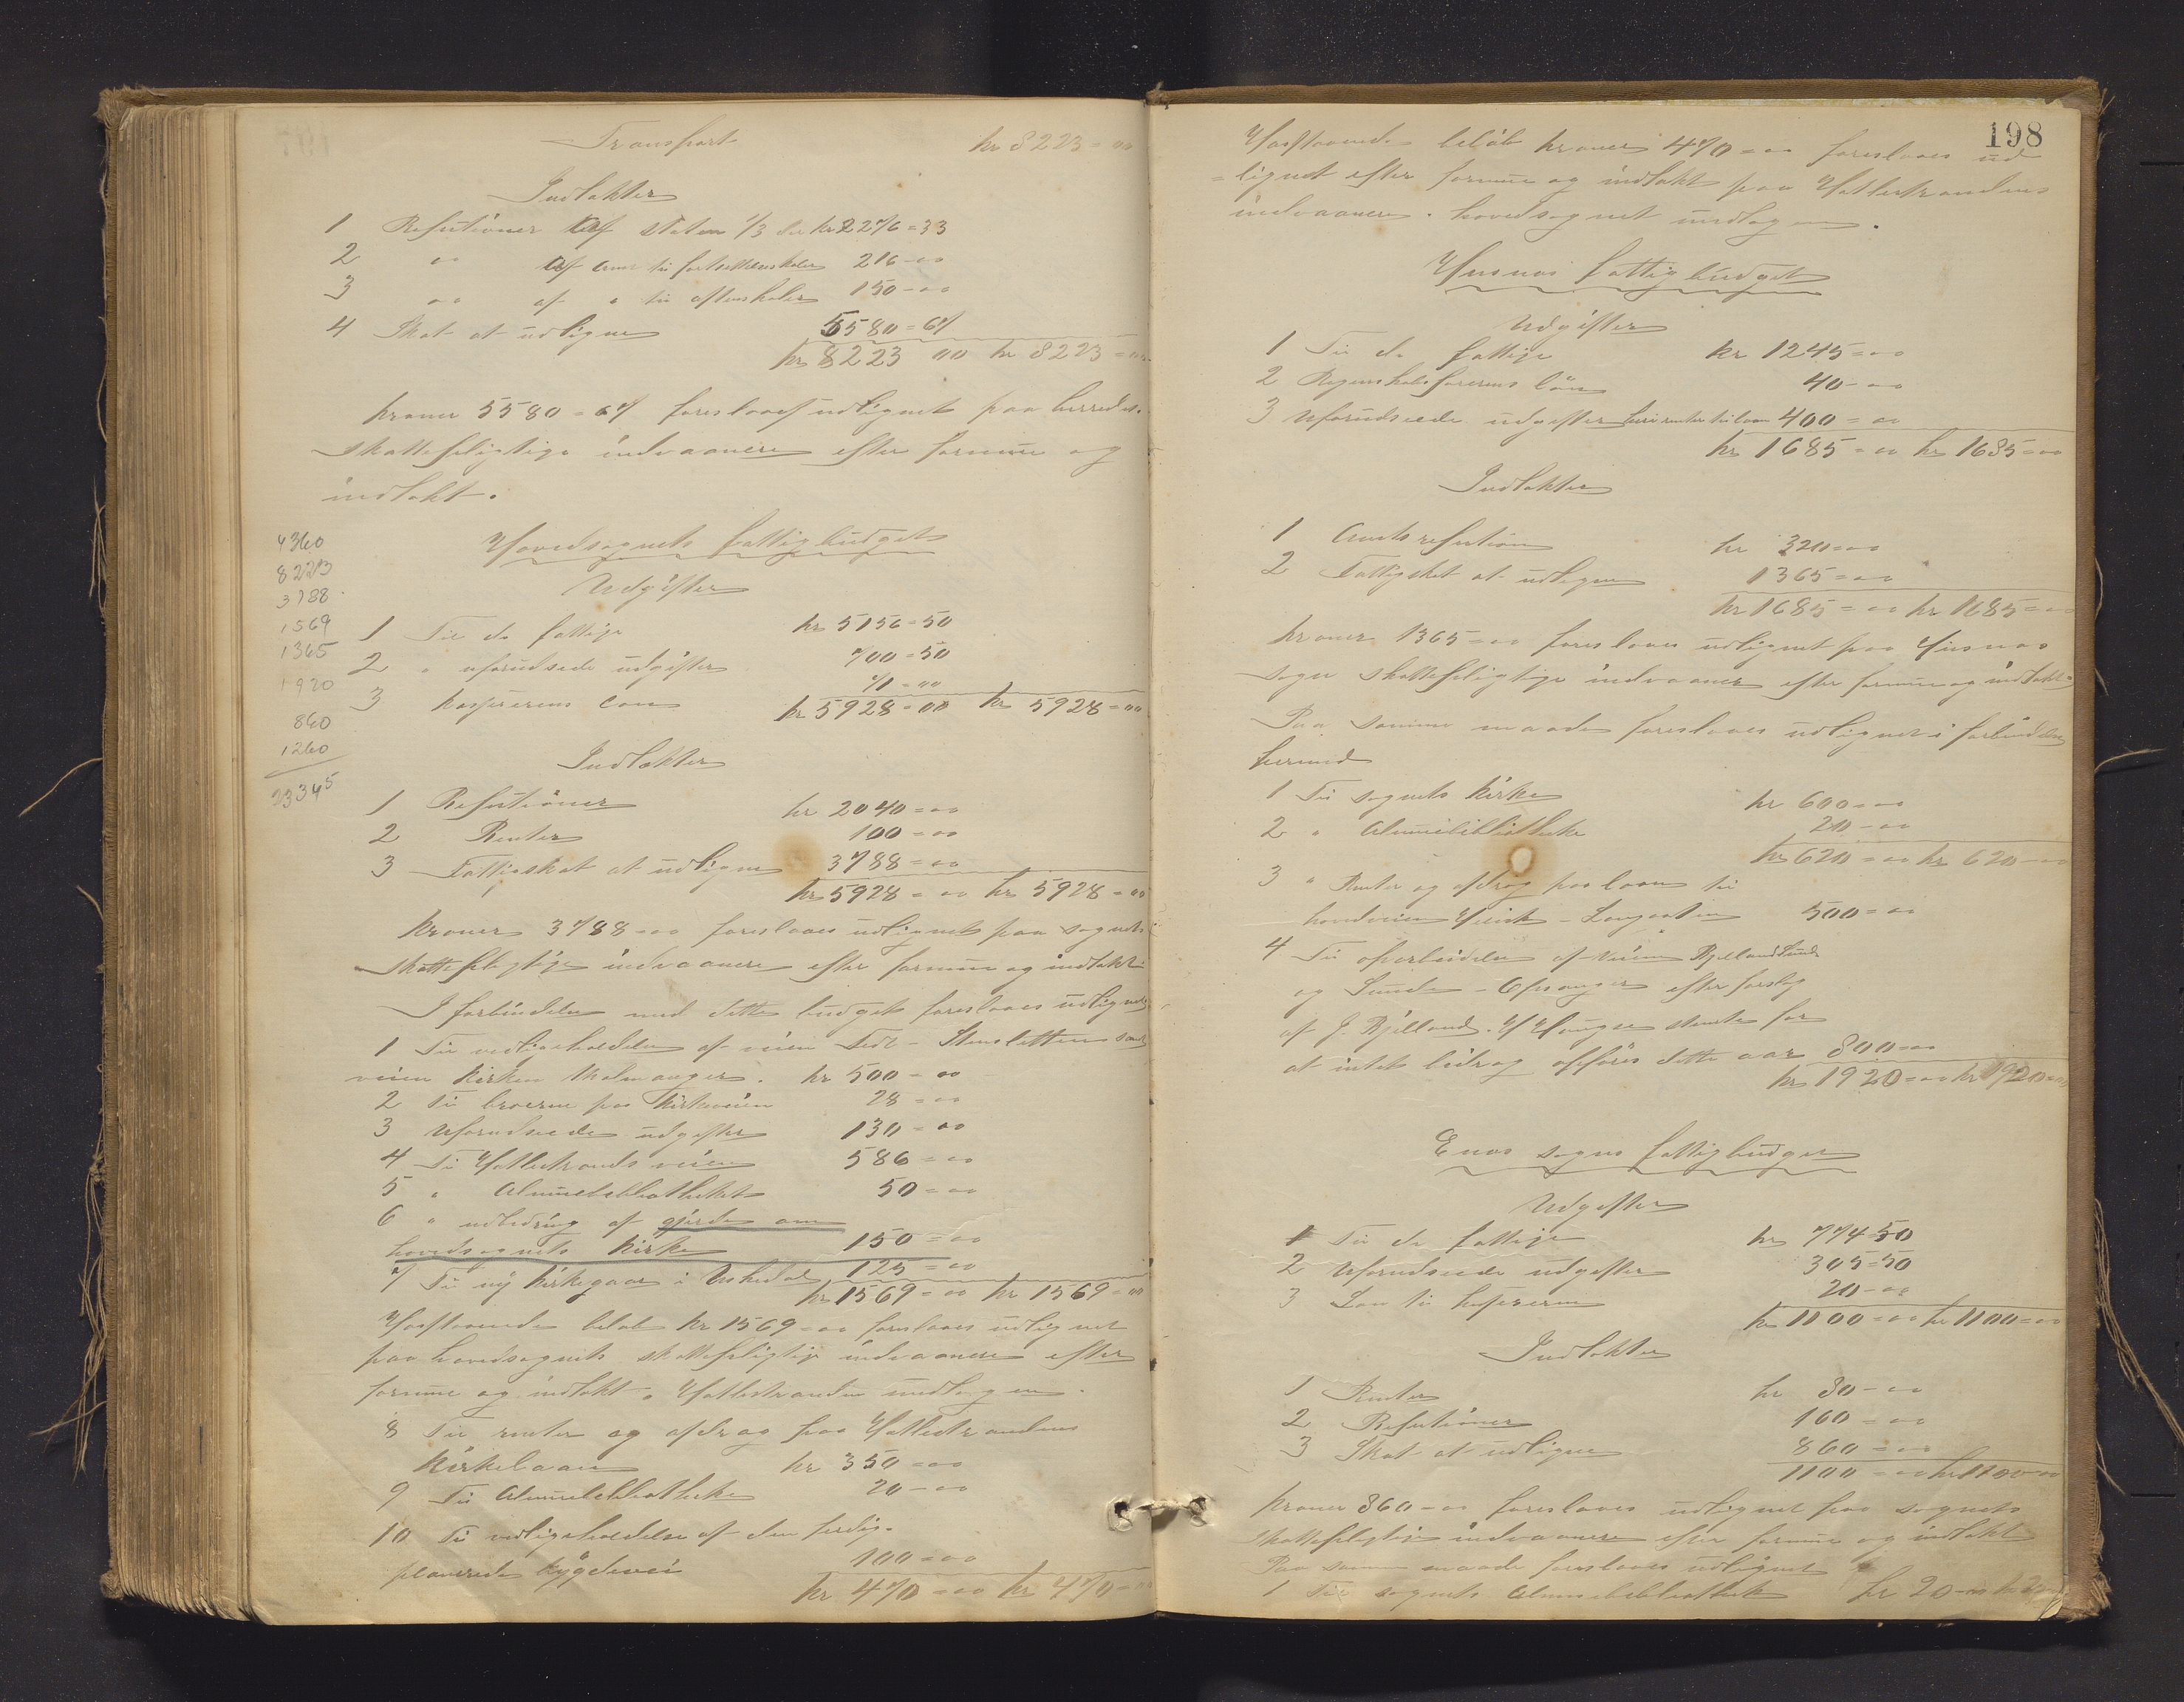 Transport kr 8223=00
Indtækter
1 Refutioner af staten 1/3 del kr 2276=33
2 " af amt til fortsættelsesskoler 216=00
3 " af " til aftenskoler 150=00
4 Skat at udligne 5580=67
kr 8223 00 kr 8223=00
kroner 5580=67 foreslaaes udlignet paa herredets
skattepligtige indvaanere efter formue og
indtækt.
Hovedsognets fattigbudget
Udgifter
1 Til de fattige kr 5156=50
2 " uforudseede udgifter 700=50
3 kasserers løn 71=00
kr 5928=00 kr 5928=00
4360
8223
3788
1569
1365
1920
860
1260
23345
Indtækter
1 Refutioner kr 2040=00
2 Renter 100=00
3 Fattigskat at udligne 3788=00
kr 5928=00 kr 5928=00
kroner 3788=00 foreslaaes udlignet paa sognets
skattepligtige indvaanere efter formue og indtækt
I forbindelse med dette budget foreslaaes udlignet
1 Til vedligeholdelse af veien Tedt - Stensletten samt
veien kirken Malmanger. kr 500=00
2 Til broerne paa kirkeveien 28=00
3 Uforudseede udgifter 130=00
4 Til Hatlestrands veien 586=00
5 " Almuebibliotheket 50=00
6 " udbedring af gjerde om
hovedsognets kirke 150=00
7 Til ny kirkegaar i Uskedal 125=00
kr 1569=00 kr 1569=00
Hosstaaende beløb kr 1569=00 foreslaaes udlignet
paa hovedsognets skattepligtige indvaanere efter
formue og indtækt. Hatlestranden undtagen.
8 Til renter og afdrag paa Hatlestrandens
kirkelaan kr 350=00
9 Til Almuebibliotheke 20=00
10 Til vedligeholdelse af den færdig-
planerede bygdevei 100=00
kr 470=00 kr 470=00
198
Hosstaaende beløb kroner 470=00 foreslaaes ud
=lignet efter formue og indtækt paa Hatlestrandens
indvaanere. hovedsognet undtagen.
Husnæs fattigbudget
Udgifter
1 Til de fattige kr 1245=00
2 Regnskabsførerens løn 40=00
3 Uforudseede udgifter heri renter til laan 400=00
kr 1685=00 kr 1685=00
Indtækter
1 Amtsrefution kr 320=00
2 Fattigskat at udligne 1365=00
kr 1685=00 kr 1685=00
kroner 1365=00 foreslaaes udlignet paa Husnæs
sogns skattepligtige indvaanere efter formue og indtækt
Paa samme maade foreslaaes udlignet i forbindelse
hermed
1 Til sognets kirke kr 600=00
2 " Almuebibliotheke 20=00
kr 620=00 kr 620=00
3 " Renter og afdrag paa laan til
hovedveien - 500=00
4 Til oparbeidelse af veien Kjellandsund
og Sunde - Opsanger efter forslag
af J. Kjelland. H Haugse stemte for
at intet bidrag opføres dette aar 800=00
kr 1920=00 kr 1920=00
Enæs sogns fattigbudget
Udgifter
1 Til de fattige kr 774=50
2 Uforudseede udgifter 305=50
3 Løn til kassereren 20=00
kr 1100=00 kr 1100=00
Indtækter
1 Renter kr 80=00
2 Refutioner 160=00
3 Skat at udligne 860=00
1100=00 kr 1100=00
kroner 860=00 foreslaaes udlignet paa sognets
skattepligtige indvaanere efter formue og indtækt
Paa samme maade foreslaaes udlignet
1 Til sognets Almuebibliothek kr 20=00 kr 20